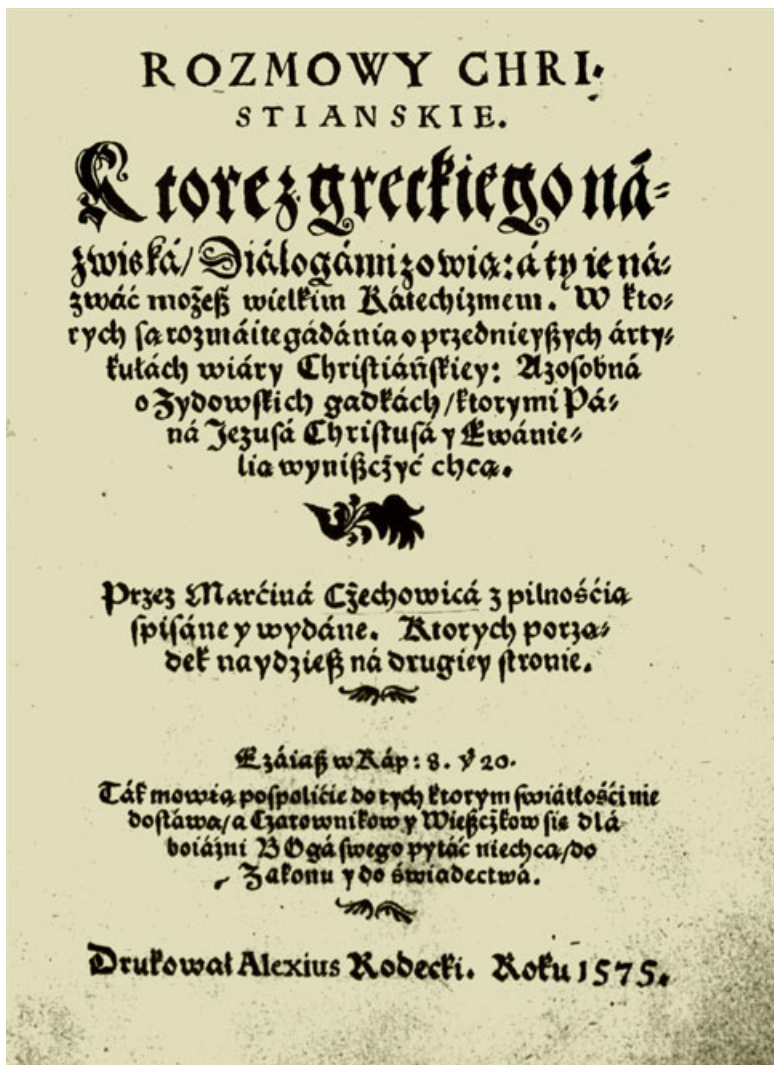 ROZMOWY CHRI-
STIANSKIE.
Ktore z greckiego ná-
zwiská/ Diálogámi zowią: á ty ie ná-
zwáć możeß wielkim Kátechizmem. W kto-
rych są rozmáite gádánia o przednieyßych árty-
kułách wiáry Christiáńskiey: A zosobná
o Zydowskich gadkách/ ktorymi Pá-
ná Jezusá Christusá y Ewánie-
lia wynißcżyć chcą.
Przez Marćiná Cżechowicá z pilnośćią
spisáne y wydáne. Ktorych porzą-
dek naydzieß ná drugiey stronie.
Ezáiaß w Káp: 8. ẏ 20.
Ták mowią pospolićie do tych ktorym swiátłośći nie
dostáwa/ a Czarownikow y Wießcżkow sie dlá
boiáżni BOgá swego pytáć niechcą/ do
Zakonu y do świadectwá.
Drukował Alexius Rodecki. Roku 1575.